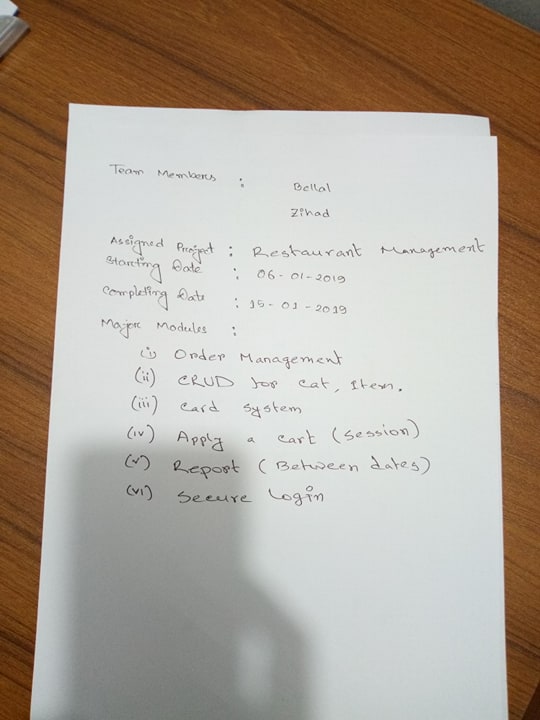 Team Members :
Bellal
Zihad
Assigned Project : Restaurant Management
Starting Date : 06-01-2019
Completing Date : 15-01-2019
Major Modules :
(i) Order Management
(ii) CRUD for Cat, Item.
(iii) Card System
(iv) Apply a cart (Session)
(v) Report (Between dates)
(vi) Secure Login